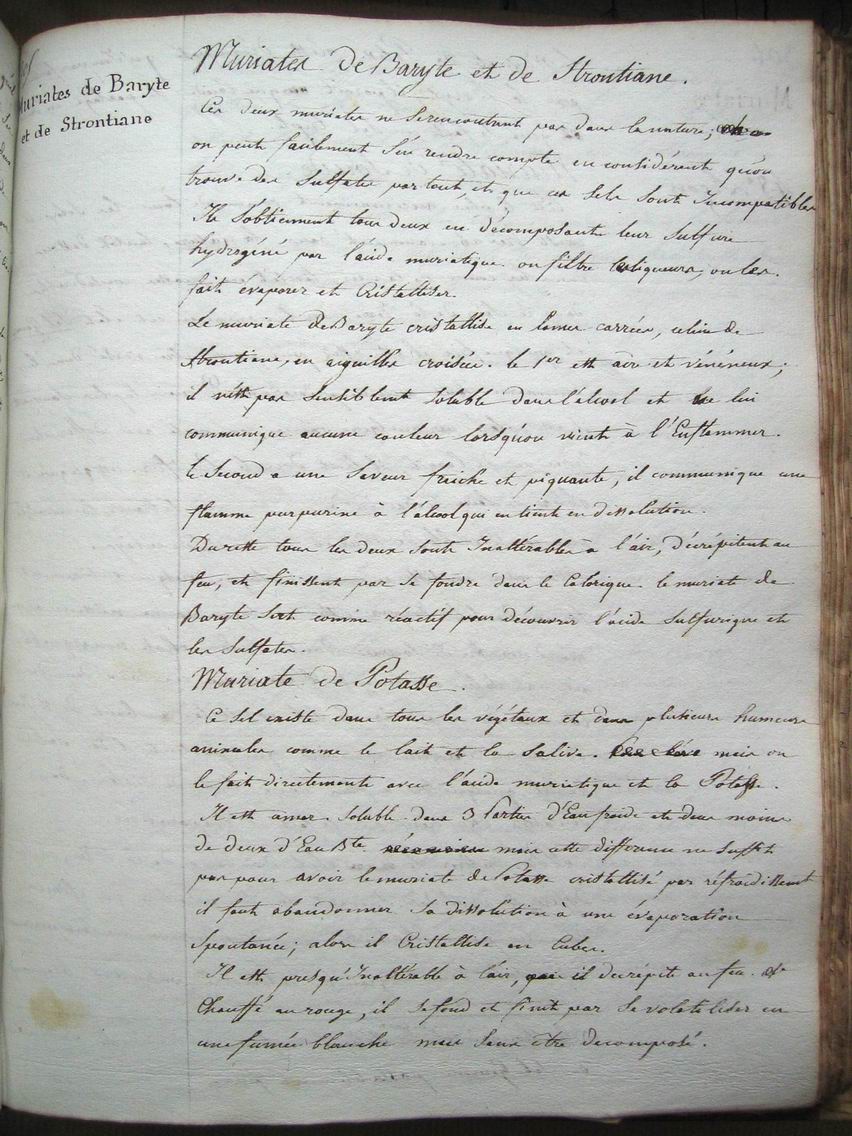 Muriates de Baryte
et de Strontiane
Muriates de Baryte et de Strontiane.
Ces deux muriates ne se rencontrent pas dans la nature;
on peut facilement s'en rendre compte en considérant qu'on
trouve des sulfates partout, et que ces sels sont Incompatibles
Ils s'obtiennent tous deux en décomposant leur sulfure
hydrogéné par l'acide muriatique. on filtre les liqueurs, on les
fait evaporer et Cristalliser.
Le muriate de Baryte cristallise en lames carrées, celui de
Strontiane, en aiguilles croisées. le 1er est acre et vénéneux;
il n'est pas sensiblemt soluble dans l'alcool et ne lui
communique aucune couleur lorsqu'on vient à l'Enflammer.
le Second a une saveur fraiche et piquante, il communique une
flamme purpurine à l'alcool qui en tient en dissolution.
Du reste tous les deux sont Inaltérables à l'air, décrépitent au
feu, et finissent par se fondre dans le Calorique. le muriate de
Baryte sert comme réactif pour découvrir l'acide sulfurique et
les sulfates.
Muriate de Potasse.
Ce sel existe dans tous les végétaux et dans plusieurs humeurs
animales comme le lait et la salive. mais on
le fait directement avec l'acide muriatique et la Potasse.
Il est amer. soluble dans 3 Parties d'Eau froide et dans moins
de deux d'Eau Bte mais cette différence ne suffit
pas pour avoir le muriate de Potasse cristallisé par réfroidissemt
il faut abandonner sa dissolution à une évaporation
spontanée; alors il Cristallise en Cubes.
Il est presqu'Inaltérable à l'air, il décrépite au feu.
Chauffé au rouge, il se fond et finit par se volatiliser en
une fumée blanche mais sans être décomposé.